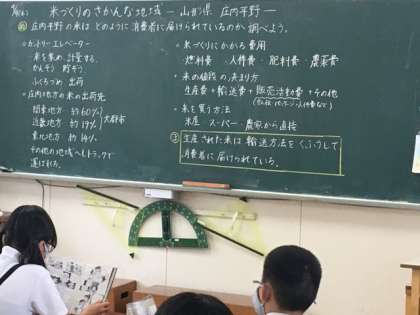 米づくりのさかんな地域 ー山形県 庄内平野ー
め 庄内平野の米はどのように消費者に届けられているのか調べよう。
・カントリーエレベーター
・米を集め、計量する
かんそう 貯ぞう
ふくろづめ 出荷
・庄内地方の米の出荷先
関東地方…約60%
近畿地方…約19%
大都市
東北地方…約14%
その他の地域へもトラックで
運ばれる。
・米づくりにかかる費用
燃料費・人件費・肥料費・農薬費
・米の値段の決まり方
生産費+輸送費+販売活動費+その他
・米を買う方法
米屋・スーパー・農家から直接
ま 生産された米は輸送方法をくふうして
消費者に届けられている。